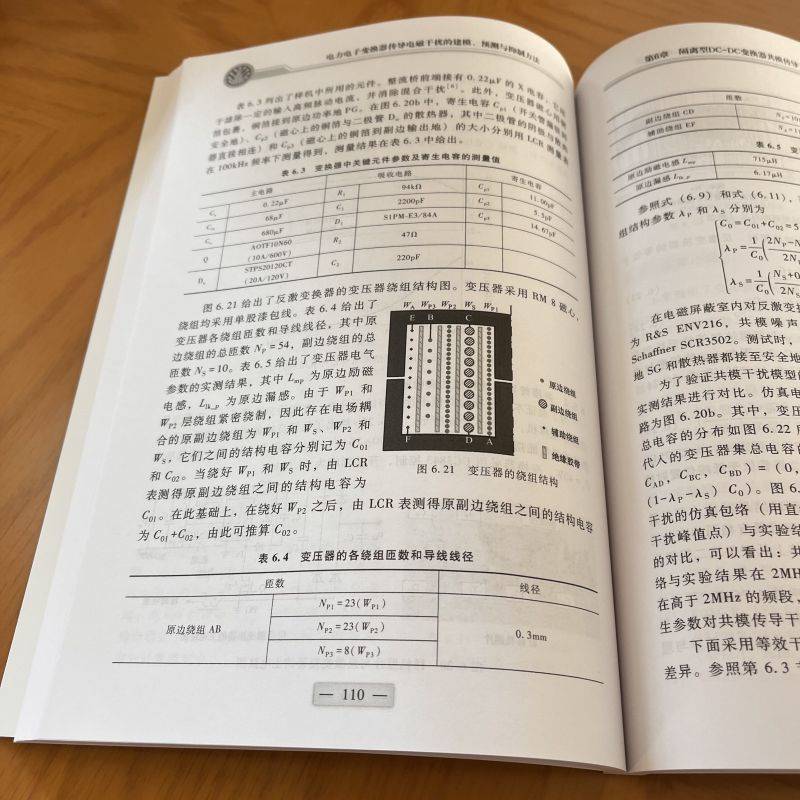 电力电子变换器传导电磁干扰的建模、预测与抑制方法
表6.3列出了样机中所用的元件。整流桥前端接有0.22μF的X电容，它用
于滤除一定的输入高频脉动电流，并消除混合干扰[6]。此外，变压器磁心用铜
箔包裹，铜箔接到原边功率地PG。在图6.20b中，寄生电容Cp1（开关管漏极到
安全地）、Cp2（磁心上的铜箔与二极管Do的散热器，其中二极管的阴极与散热
器直接相连）和Cp3（磁心上的铜箔到副边输出地）的大小分别用LCR测量表
在100kHz频率下测量得到，测量结果在表6.3中给出。
表6.3 变换器中关键元件参数及寄生电容的测量值
主电路 吸收电路 寄生电容
0.22μF R1 94kΩ Cp1 11.00pF
68μF C1 2200pF Cp2 5.5pF
680μF D1 S1PM-E3/84A Cp3 14.67pF
Q AOTF10N60（10A/600V） R2 47Ω
Do STPS20120CT（20A/120V） C2 220pF
图6.21给出了反激变换器的变压器绕组结构图。变压器采用RM 8磁心，
绕组均采用单股漆包线。表6.4给出了
变压器各绕组匝数和导线线径，其中原
边绕组的总匝数NP=54，副边绕组的总
匝数NS=10。表6.5给出了变压器电气
参数的实测结果，其中Lmp为原边励磁
电感，Llk_p为原边漏感。由于WP1和
WP2层绕组紧密绕制，因此存在电场耦
合的原副边绕组为WP1和WS、WP2和
WS，它们之间的结构电容分别记为C01
和C02。当绕好WP1和WS时，由LCR
表测得原副边绕组之间的结构电容为
C01。在此基础上，在绕好WP2之后，由LCR表测得原副边绕组之间的结构电容
为C01+C02，由此可推算C02。
WA WP3 WP2 WS WP1
E B C
F D A
原边绕组
副边绕组
辅助绕组
绝缘胶带
图6.21 变压器的绕组结构
表6.4 变压器的各绕组匝数和导线线径
匝数 线径
原边绕组AB NP1=23(WP1) 0.3mm
NP2=23(WP2)
NP3=8(WP3)
— 110 —
第6章 隔离型DC-DC变换器共模传导
匝数
副边绕组CD
辅助绕组EF
表6.5
原边励磁电感Lmp 715μH
原边漏感Llk_p 6.17μH
参照式（6.9）和式（6.11），
组结构参数λP和λS分别为
C0=C01+C02=5
在电磁屏蔽室内对反激变换
为R&S ENV216，共模噪声
Schaffner SCR3502。测试时，
地SG和散热器都接至安全地
为了验证共模干扰模型的
实测结果进行对比。仿真电
路为图6.20b。其中，变压
总电容的分布如图6.22
代入的变压器集总电容的
CAD, CBC, CBD) = (0,
(1-λP-λS) C0)。图6.
干扰的仿真包络（用直
干扰峰值点）与实验结
的对比，可以看出：共
络与实验结果在2MH
在高于2MHz的频段，
生参数对共模传导干
下面采用等效干
差异。参照第6.3